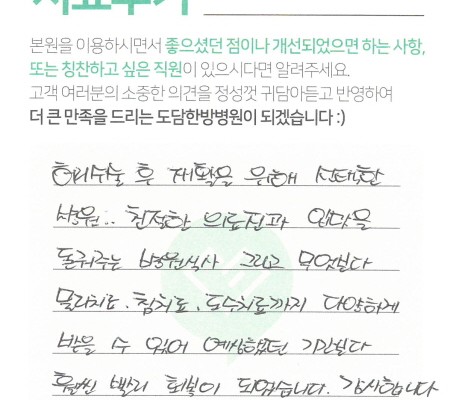 치료후기
본원을 이용하시면서 좋으셨던 점이나 개선되었으면 하는 사항,
또는 칭찬하고 싶은 직원이 있으시다면 알려주세요.
고객 여러분의 소중한 의견을 정성껏 귀담아듣고 반영하여
더 큰 만족을 드리는 도담한방병원이 되겠습니다 :)
허리수술 후 재활을 위해 선택한
병원.. 친절한 의료진과 입맛을
돋궈주는 병원식사 그리고 무엇보다
물리치료, 침치료, 도수치료까지 다양하게
받을 수 있어 예상했던 기간보다
훨씬 빨리 회복이 되었습니다. 감사합니다